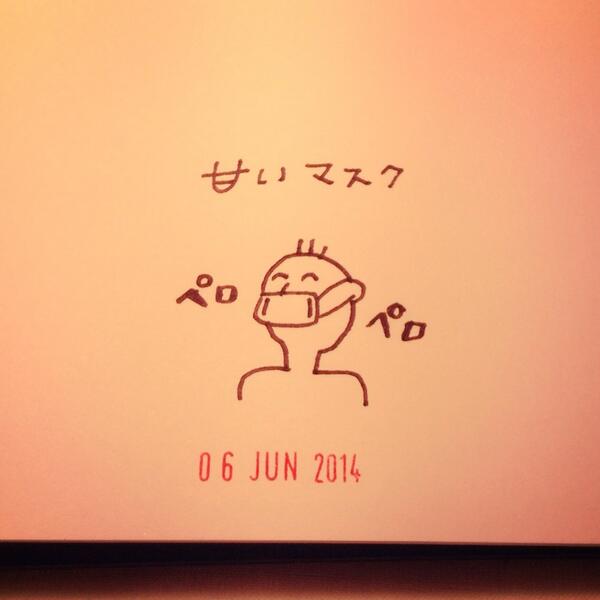 甘いマスク
ペロ
ペロ
06 JUN 2014